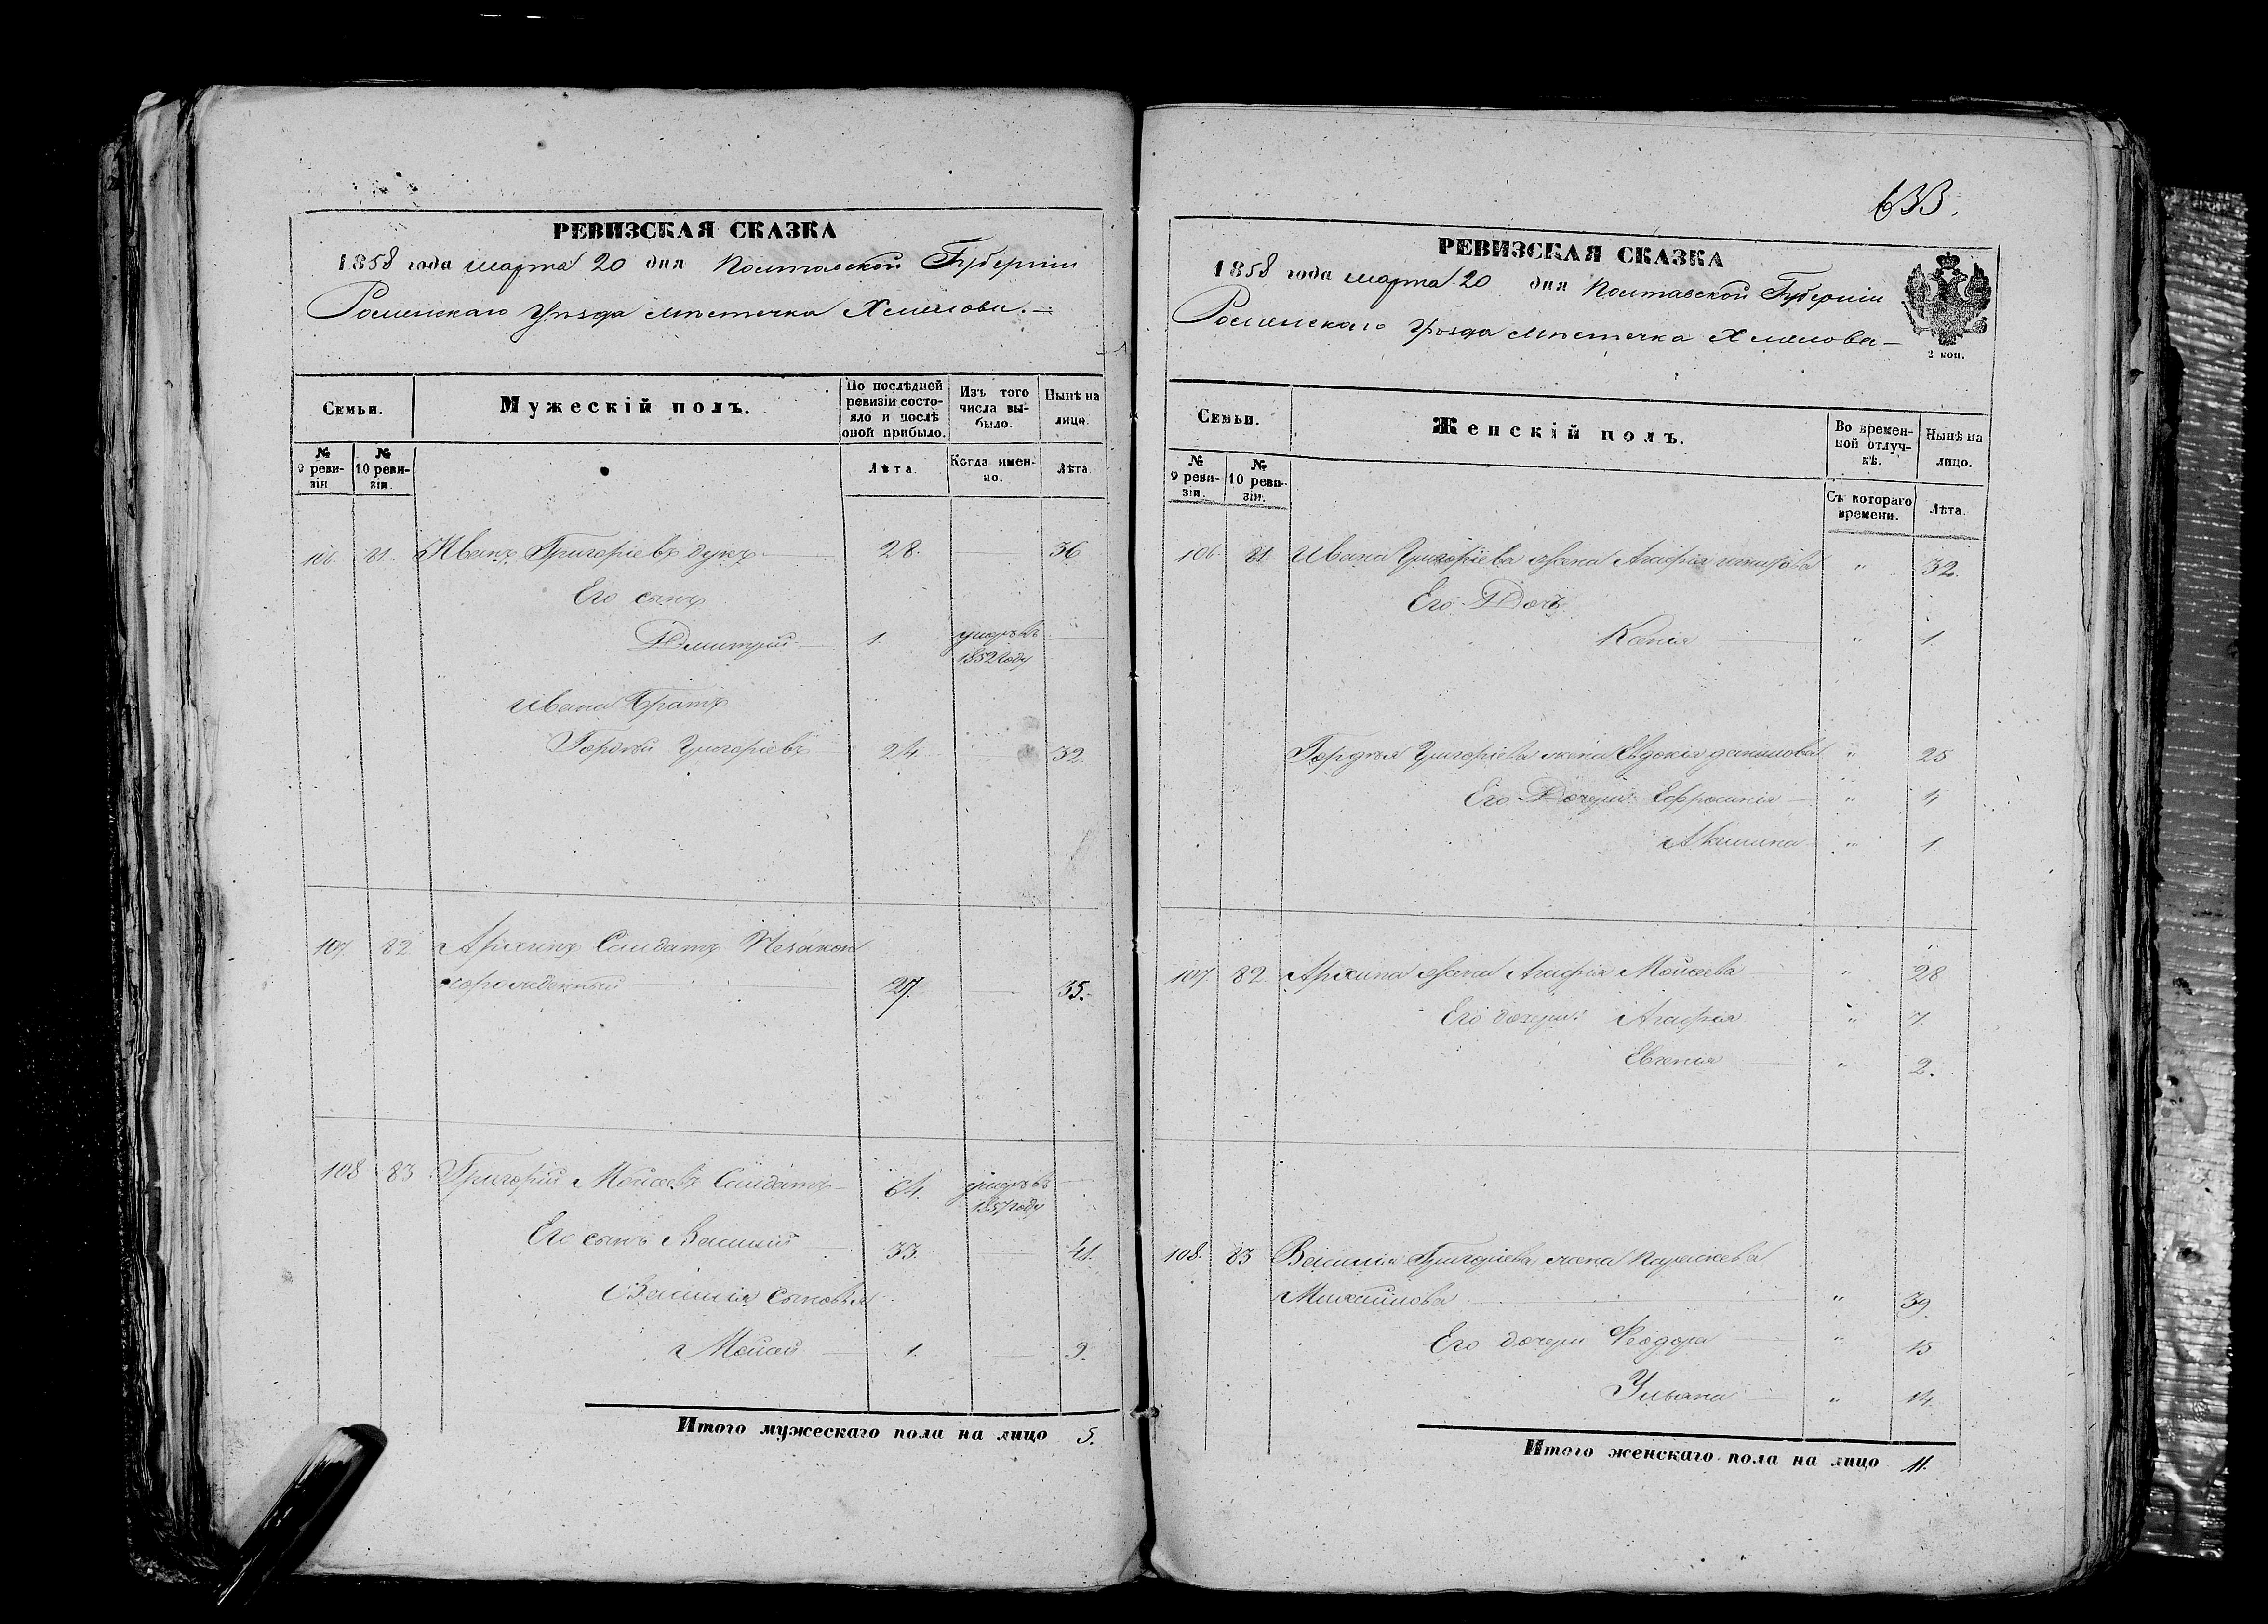 РЕВИЗСКАЯ СКАЗКА
1858 года марта 20 дня Полтавской Губерніи
Роменскаго Уѣзда мѣстечка Хмелова.
Семьи.
Мужескій полъ.
По послѣдней ревизіи состояло и послѣ оной прибыло.
Изъ того числа выбыло.
Нынѣ на лицо.
№ 9 ревизіи
№ 10 ревизіи.
Лѣта.
Когда именно.
Лѣта.
106. 81. Иванъ Григоріевъ Дукъ 28. 36
Его сынъ
Дмитрій 1. умеръ въ 1852 году
Ивана Братъ
Гордѣй Григоріевъ 24. 32.
107. 82 Архипъ Солдатъ Незакон
норожденный 27. 35.
108 83 Григорій Моисеевъ Солдатъ 64. умеръ въ 1857 году
Его сынъ Василій 33. 41.
Василія сыновья
Моисей 1. 9.
Итого мужескаго пола на лицо 5.
633.
РЕВИЗСКАЯ СКАЗКА
1858 года марта 20 дня Полтавской Губерніи
Роменскаго Уѣзда мѣстечка Хмелова
2 коп.
Семьи.
Женскій полъ.
Во временной отлучкѣ.
Нынѣ на лицо.
№ 9 ревизіи.
№ 10 ревизіи.
Съ котораго времени.
Лѣта.
106. 81. Ивана Григоріева жена Агафія " 32.
Его Дочь
Ксенія " 1.
Гордѣя Григоріева жена Евдокія Данилова " 25
Его Дочери: Ефросинія "
Акилина " 1
107. 82. Архипа жена Агафія Моисеева " 28
Его дочери: Агафія " 7.
Евгенія " 2.
108. 83 Василія Григоріева жена Параскева
Михайлова " 39.
Его дочери Феодора " 15
Ульяна " 14.
Итого женскаго пола на лицо 11.